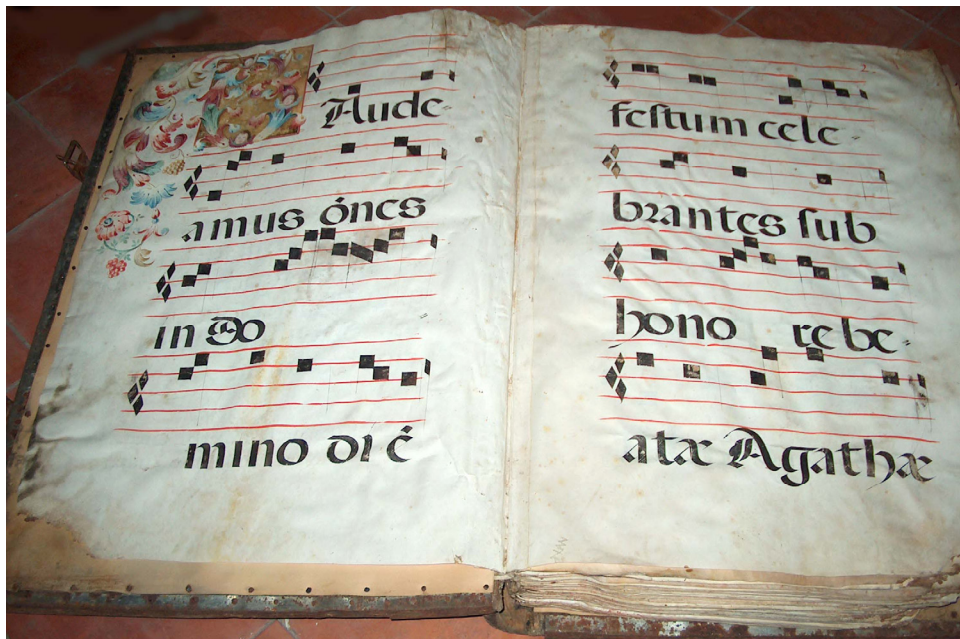 GAude-
amus óncs
in Do
mino di ē
festum cele-
brantes sub
hono re be-
atæ Agathæ